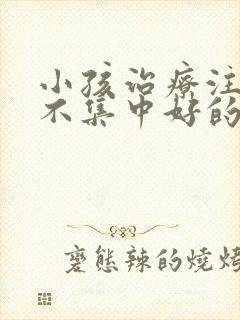 小孩治療注
不集中好的
變態辣的燒烤